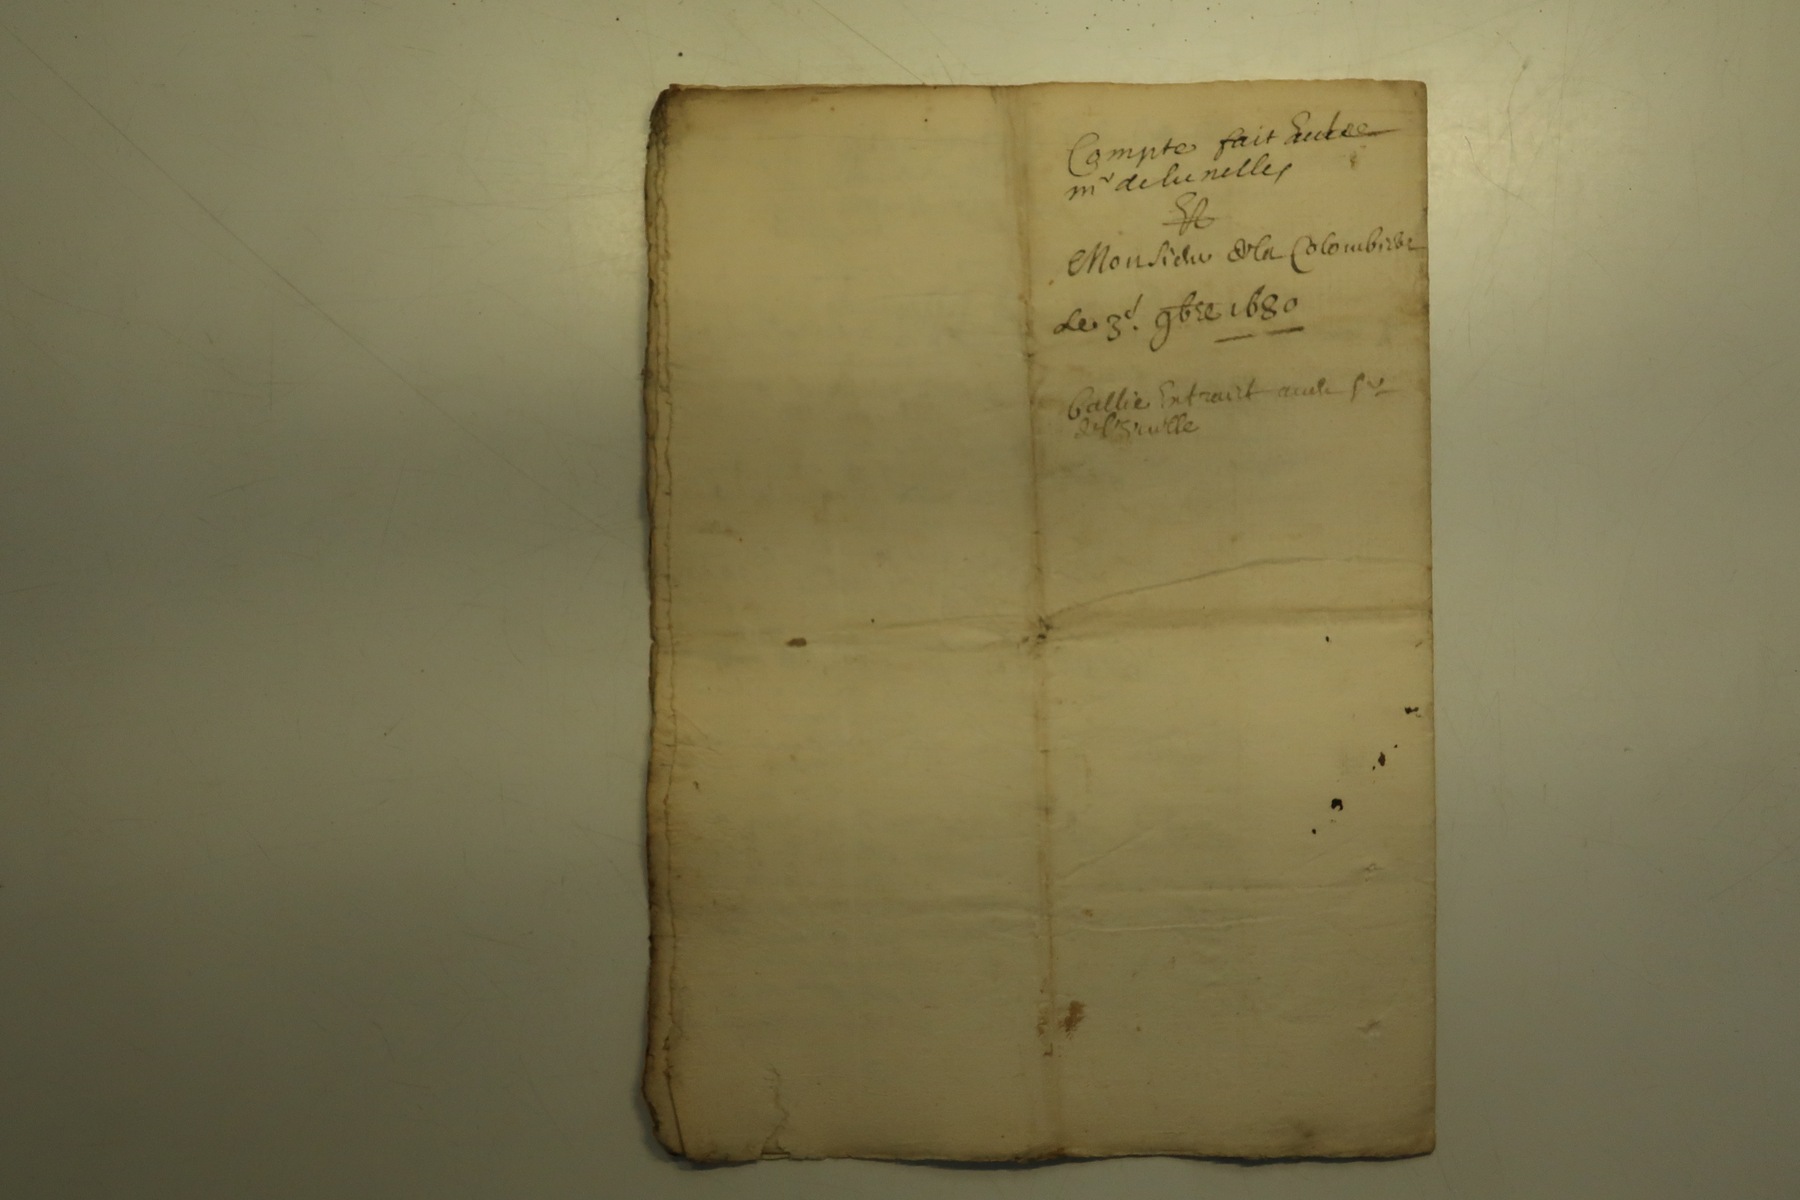 Compte fait Entre
mr de lunelles
Et
Monsieur de la Colombiere
Le 3e. 9bre 1680
baillé Extraict aud. sr